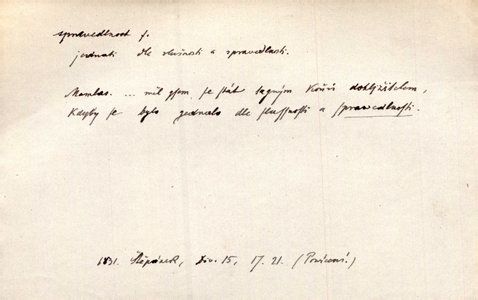 spravedlnost f.
jednati dle slušnosti a spravedlnosti.
Mumlas. ... měl gsem se stát tagným dohlјžitelem,
kdyby se bylo gednalo dle slussnosti a sprawedlnosti.
1831. Štěpánek, Div. 15, 17. 21.